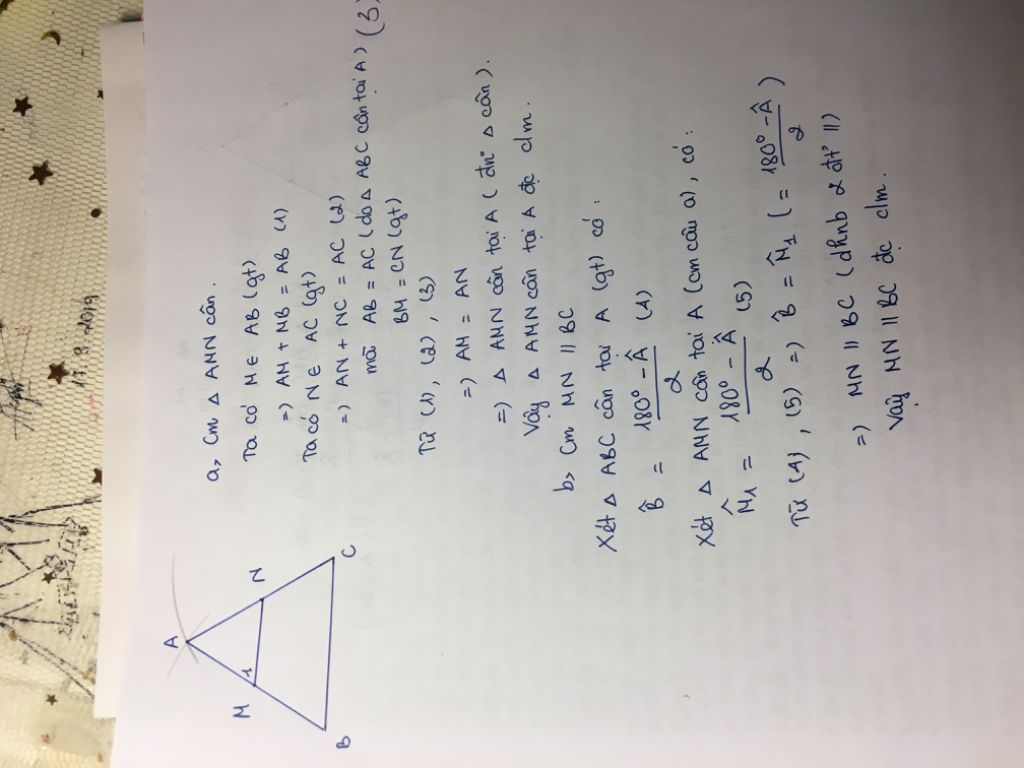 A
M
1
N
B
C
a, Cm △ AMN cân.
Ta có M ∈ AB (gt)
=) AM + MB = AB (1)
Ta có N ∈ AC (gt)
=) AN + NC = AC (2)
mà AB = AC (do △ ABC cân tại A) (3)
BM = CN (gt)
Từ (1), (2), (3)
=) AM = AN
=) △ AMN cân tại A (đn° △ cân).
Vậy △ AMN cân tại A đc clm.
b, Cm MN // BC
Xét △ ABC cân tại A (gt) có:
B̂ = (180° - Â)/2 (4)
Xét △ AMN cân tại A (cm câu a), có:
M̂1 = (180° - Â)/2 (5)
Từ (4), (5) =) B̂ = M̂1 (= (180° - Â)/2)
=) MN // BC (dhnb 2 đt° //)
Vậy MN // BC đc clm.
17.9.2019